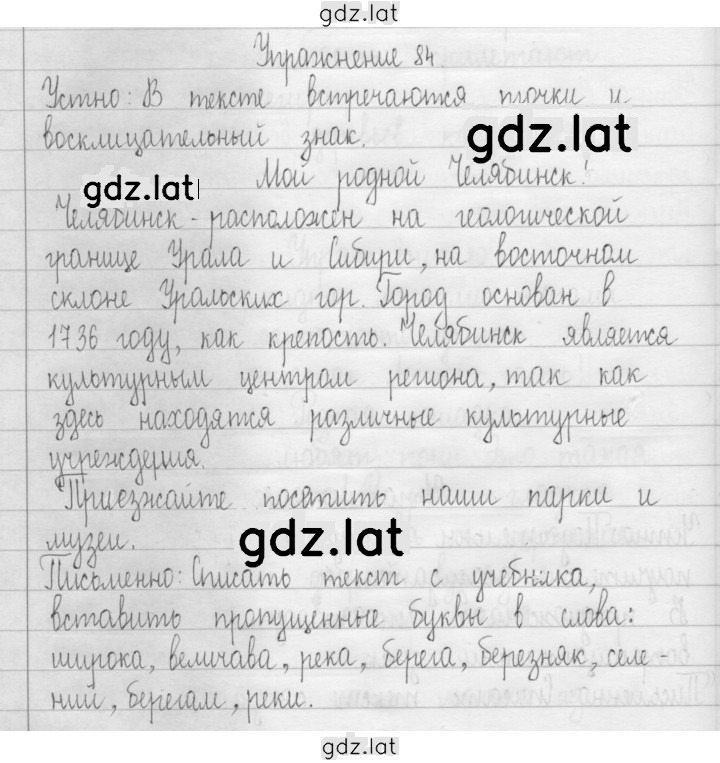 gdz.lat
Упражнение 84
Устно: В тексте встречаются точки и
восклицательный знак.
gdz.lat
gdz.lat
Мой родной Челябинск!
Челябинск - расположен на геологической
границе Урала и Сибири, на восточном
склоне Уральских гор. Город основан в
1736 году, как крепость. Челябинск является
культурным центром региона, так как
здесь находятся различные культурные
учреждения.
Приезжайте посетить наши парки и
музеи.
gdz.lat
Письменно: Списать текст с учебника,
вставить пропущенные буквы в слова:
широка, величава, река, берега, березняк, селе-
ний, берегам, реки.
gdz.lat